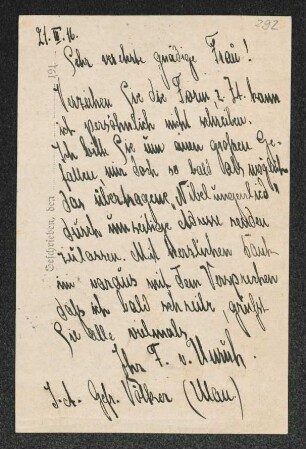 292
21. III. 16.
191
Geschrieben, den
Sehr verehrte gnädige Frau!
Verzeihen Sie die Form z. Zt. kann
ich persönlich nicht schreiben.
Ich bitte Sie um einen großen Ge-
fallen mir doch so bald als möglich
das übertragene "Nibelungenlied"
durch umseitige Adresse senden
zu lassen. Mit herzlichem Dank
im voraus mit dem Versprechen
daß ich bald schreibe, grüßt
Sie alle vielmals
Ihr F. v. Unruh.
I. A. Gefr. Völkner (Ulan.)